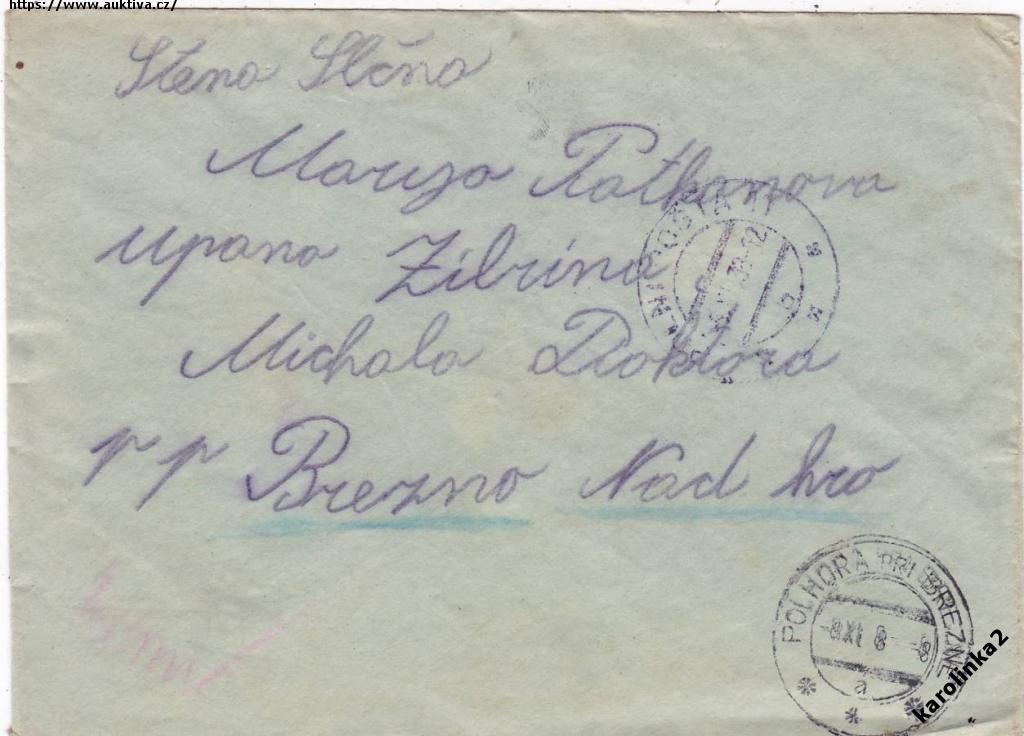 https://www.auktiva.cz/
Stena Slčna
Maruza Patkanova
upana Zibrina
Michala Doktora
p p Brezno Nad hro
POLHORA PRI BREZNE
8 XI
a
karolinka2